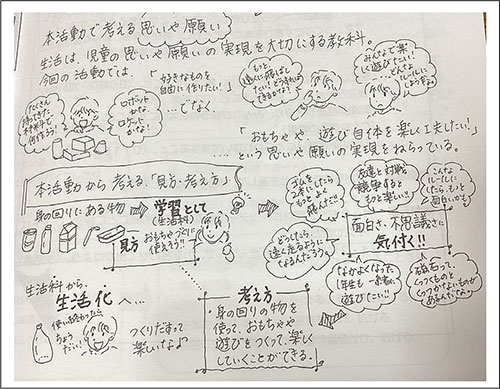 本活動で考える思いや願い
生活は、児童の思いや願いの実現を大切にする教科。
今回の活動では、
「好きなものを
自由に作りたい!」
…でなく
たくさん
持ってきた
材料で
何作ろう!
ロボット
かな
ロケット
かな!
もっと、
遠くに飛ばし
たい!どうすれば
できるかな!
みんなで楽
しく遊びたい!
どんな
ルールに
しようかな。
「おもちゃや、遊び自体を楽しく工夫したい!」
…という思いや願いの実現をねらっている。
本活動から考える、「見方・考え方」
身の回りにある物
学習として
(生活科)
見方
おもちゃづくりに
使えそう!!
ゴムを
2本にしたら
もっとよく
飛んだ!!
友達と対戦
競争すると
もっと楽しい!!
こんな
ルールに
したら、もっと
面白いかも
どうしたら、
遠く走るように
なるんだろう。
面白さ・不思議さに
気付く!!
なかよくなった
1年生も一緒に
遊びたい!!
磁石って、
くっつくものと
くっつかないものが
あるんだなぁ。
生活科から、
生活化へ…
使い終わったら
ちょう
だい!
つくりだすって
楽しいなぁ♪
考え方
・身の回りの物を
使って、おもちゃや
遊びをつくって、楽しく
していくことができる。